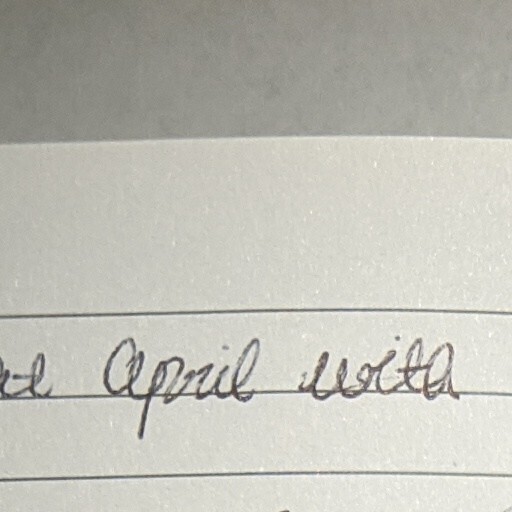 April with